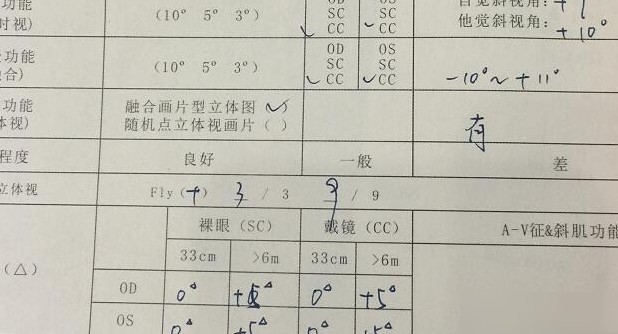 功能 (10° 5° 3°) OD OS 自觉斜视角: +
时视) SC SC 他觉斜视角:
✓ CC ✓ CC +10°
功能 (10° 5° 3°) OD OS
合) SC SC
✓ CC ✓ CC -10°~+11°
功能 融合画片型立体图 ✓
体视) 随机点立体视画片 ( ) 有
程度 良好 一般 差
立体视 Fly (+) 3 / 3 9 / 9
裸眼 (SC) 戴镜 (CC) A-V征&斜肌功能
(△) 33cm >6m 33cm >6m
OD 0△ +5△ 0△ +5△
OS 0△ +5△ 0△ +5△